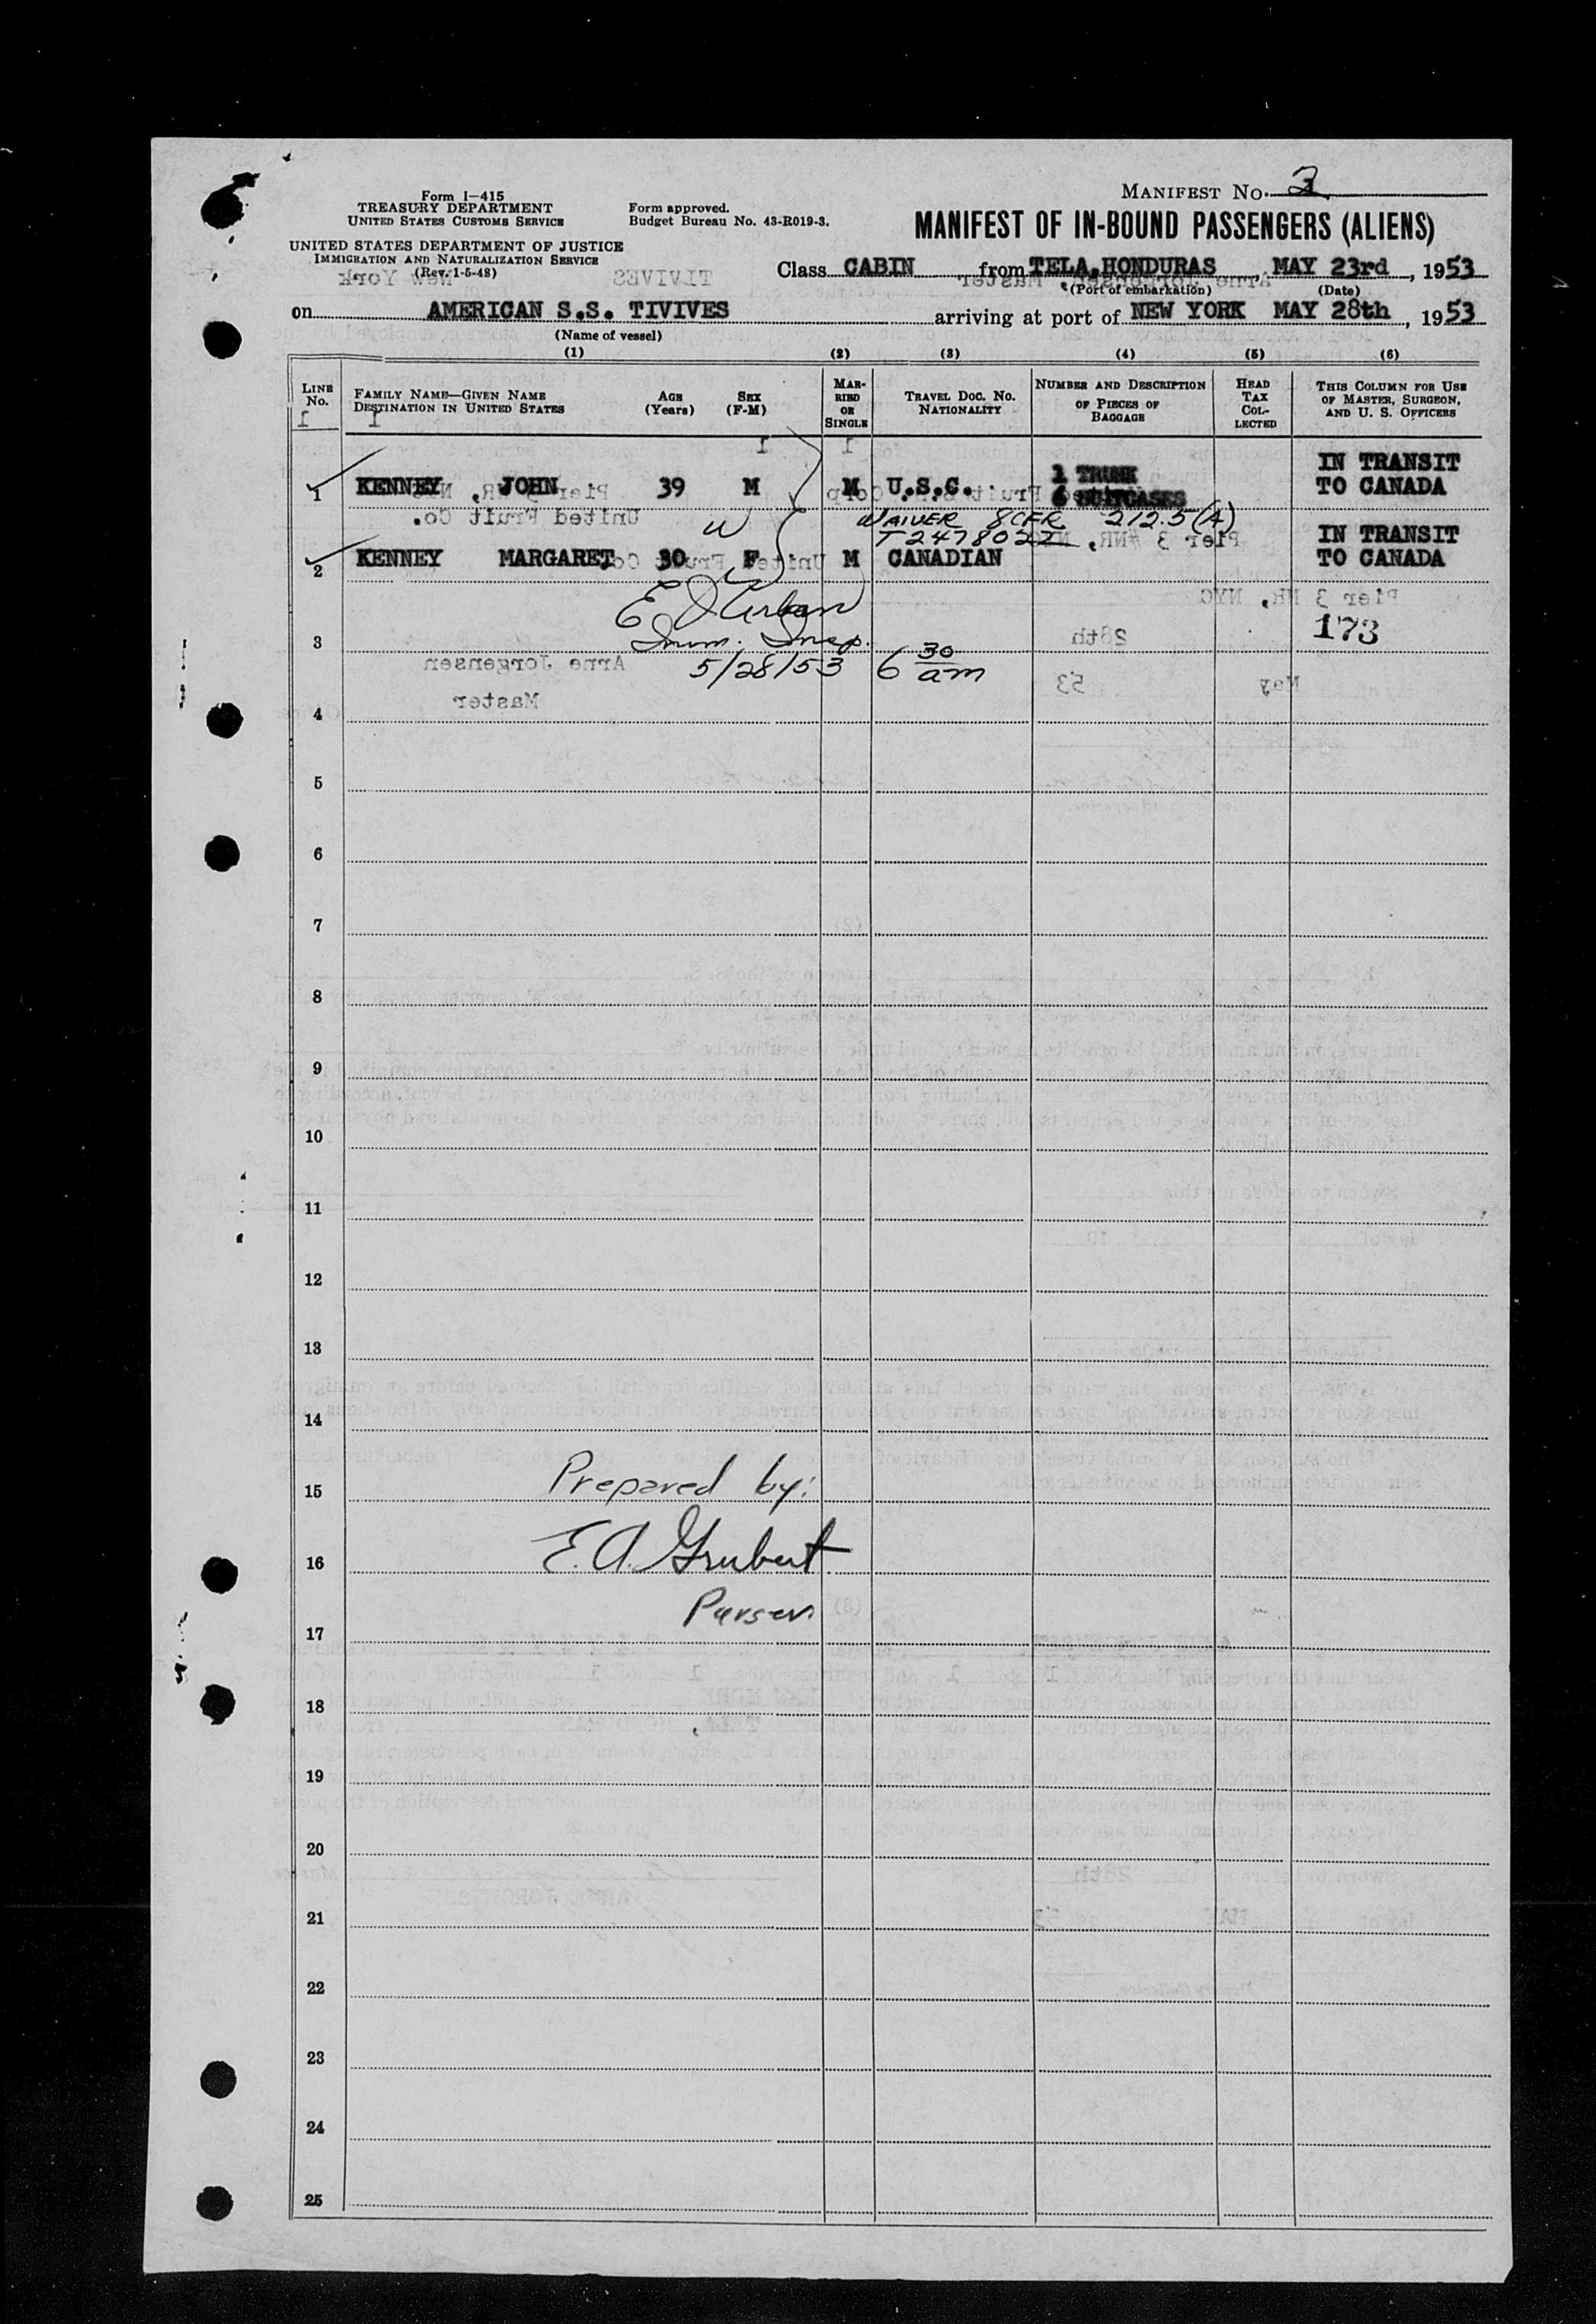 MANIFEST NO.
Form I-415
TREASURY DEPARTMENT
UNITED STATES CUSTOMS SERVICE
Form approved.
Budget Bureau No. 43-R019-3.
MANIFEST OF IN-BOUND PASSENGERS (ALIENS)
UNITED STATES DEPARTMENT OF JUSTICE
IMMIGRATION AND NATURALIZATION SERVICE
(Rev. 1-5-48)
Class CABIN from TELA, HONDURAS, MAY 23rd, 1953
(Port of embarkation) (Date)
on AMERICAN S.S. TIVIVES arriving at port of NEW YORK MAY 28th, 1953
(Name of vessel)
(1) (2) (3) (4) (5) (6)
LINE NO.
FAMILY NAME—GIVEN NAME
DESTINATION IN UNITED STATES
AGE (Years)
SEX (F-M)
MARRIED OR SINGLE
TRAVEL DOC. NO. NATIONALITY
NUMBER AND DESCRIPTION OF PIECES OF BAGGAGE
HEAD TAX COLLECTED
THIS COLUMN FOR USE OF MASTER, SURGEON, AND U. S. OFFICERS
1 KENNEY, JOHN 39 M M U.S.C. 1 TRUNK 6 SUITCASES IN TRANSIT TO CANADA
W WAIVER 8CFR 212.5(A)
2 KENNEY MARGARET 30 F M CANADIAN IN TRANSIT TO CANADA
Imm. Insp.
3 173
5/28/53 6 30 am
4
5
6
7
8
9
10
11
12
13
14
Prepared by:
15
E. A. Grubert
16
Purser
17
18
19
20
21
22
23
24
25